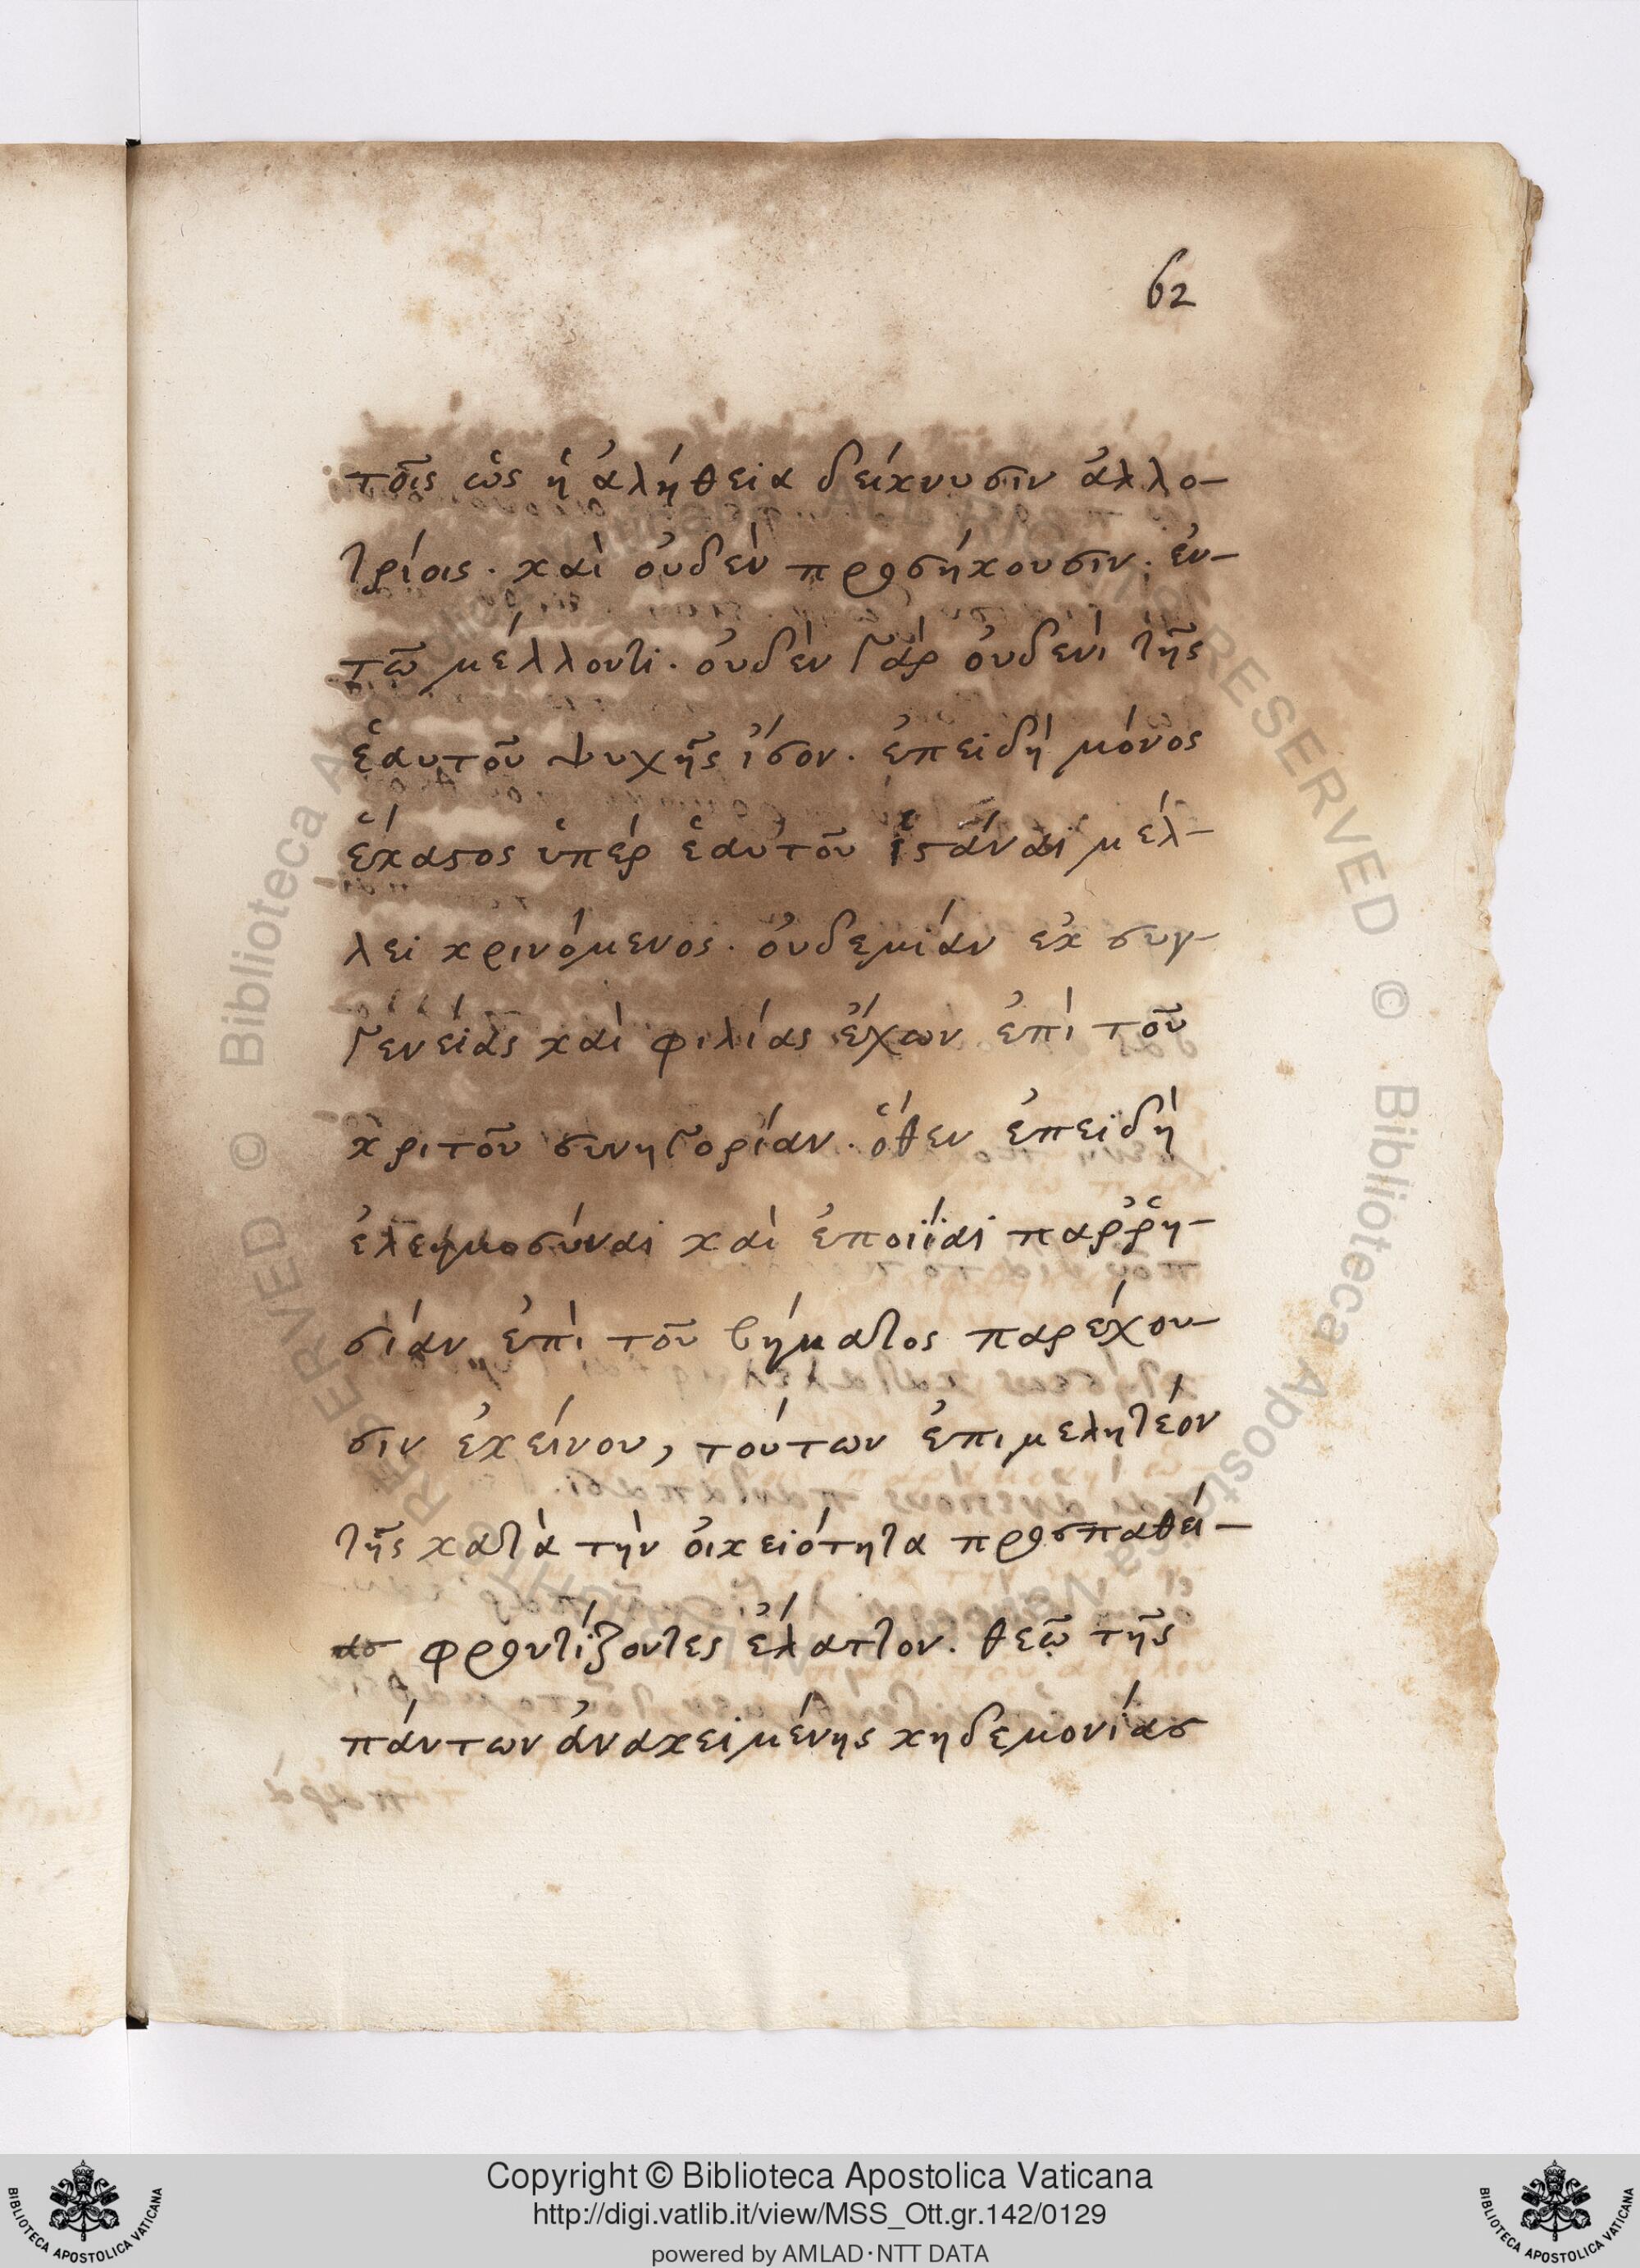 62
τοῖς ὡς ἡ ἀλήθεια δείκνυσιν ἀλλο-
τρίοις. καὶ οὐδὲν προσήκουσιν. ἐν-
τῶ μέλλοντι. οὐδὲν γὰρ οὐδενὶ τῆς
ἑαυτοῦ ψυχῆς ἴσον. ἐπειδὴ μόνος
ἕκαστος ὑπὲρ ἑαυτοῦ ἱστάναι μέλ-
λει κρινόμενος. οὐδεμίαν ἐκ συγ-
γενείας καὶ φιλίας ἔχων ἐπὶ τοῦ
κριτοῦ συνηγορίαν. ὅθεν ἐπειδὴ
ἐλεημοσύναι καὶ ἐποιΐαι παῤῥη-
σίαν ἐπὶ τοῦ βήματος παρέχου-
σιν ἐκείνου, τούτων ἐπιμελητέον
τῆς κατὰ τὴν οἰκειότητα προσπαθεί-
ας φροντίζοντες ἔλαττον. θεῶ τῆς
πάντων ἀνακειμένης κηδεμονίας
Copyright © Biblioteca Apostolica Vaticana
http://digi.vatlib.it/view/MSS_Ott.gr.142/0129
powered by AMLAD·NTT DATA
BIBLIOTECA APOSTOLICA VATICANA
BIBLIOTECA APOSTOLICA VATICANA